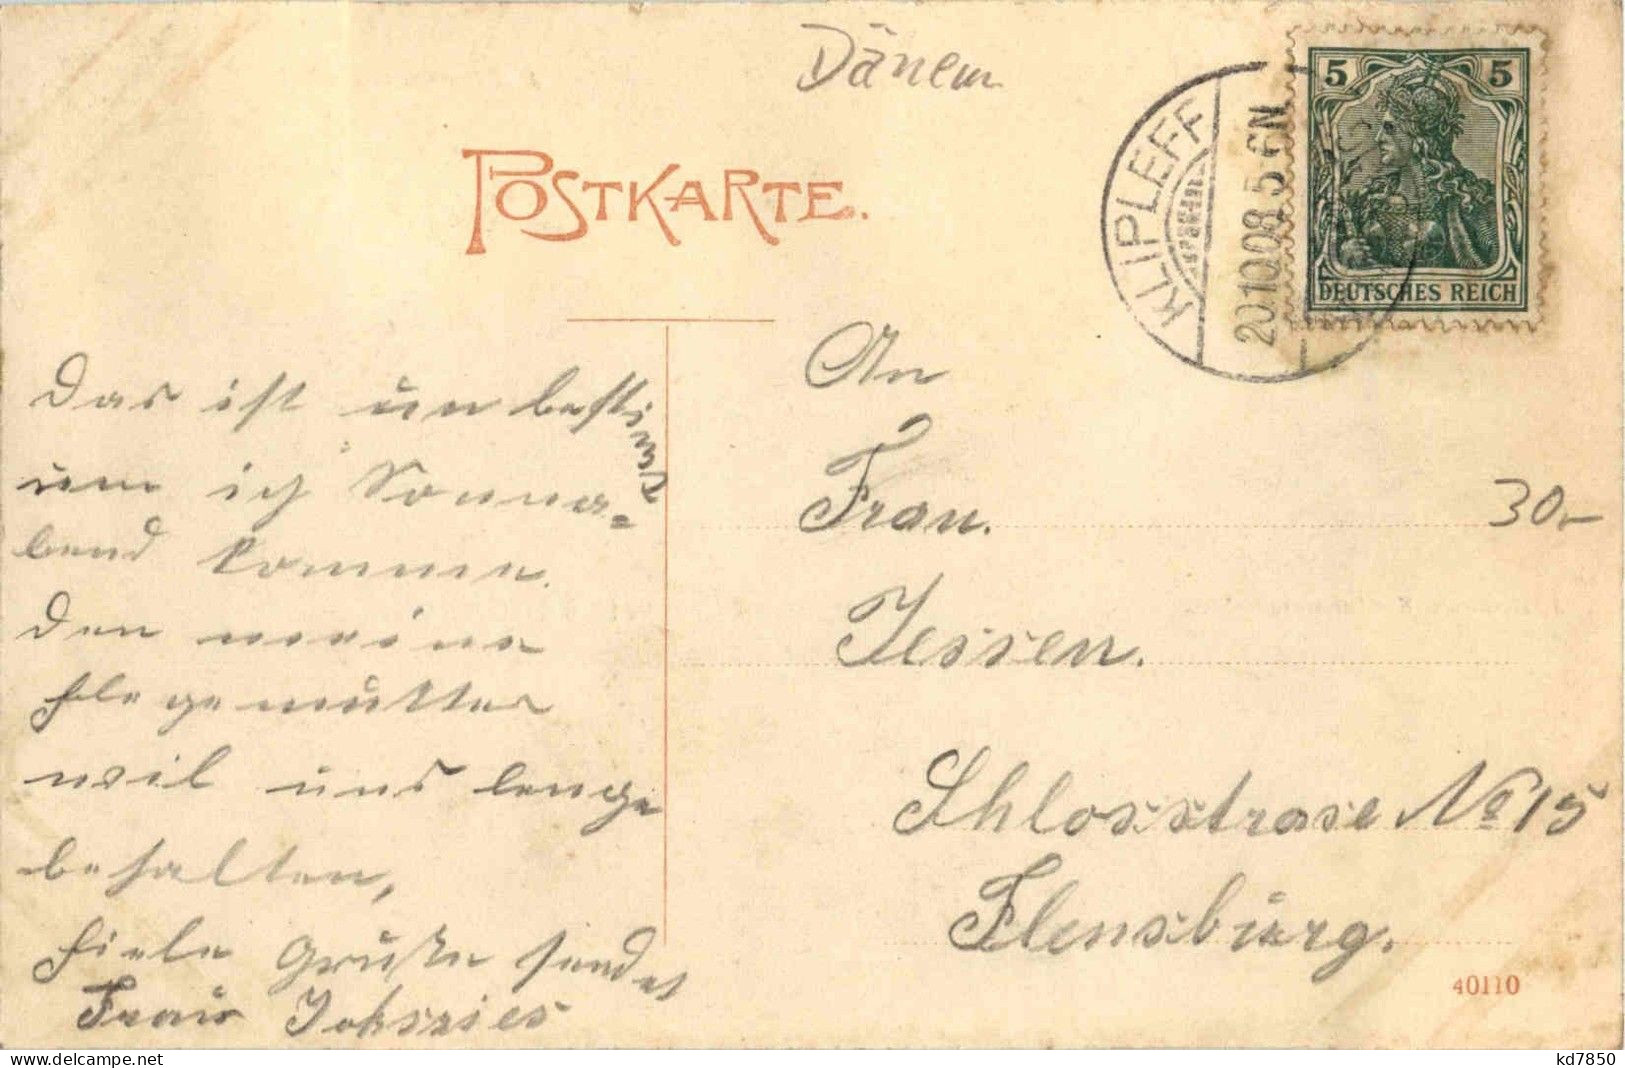 Dänem
POSTKARTE.
KLIPLEFF
20.10.08. 5-6N
5 5
DEUTSCHES REICH
Das ist un bestimt
um ich Sonna=
bend kommen.
Den meine
flegemutter
wil uns lenge
behalten,
fiele Grüße sendet
Frau
An
Frau.
Jessen.
Schlosstrase No 15
Flensburg.
30,-
40110
kd7850